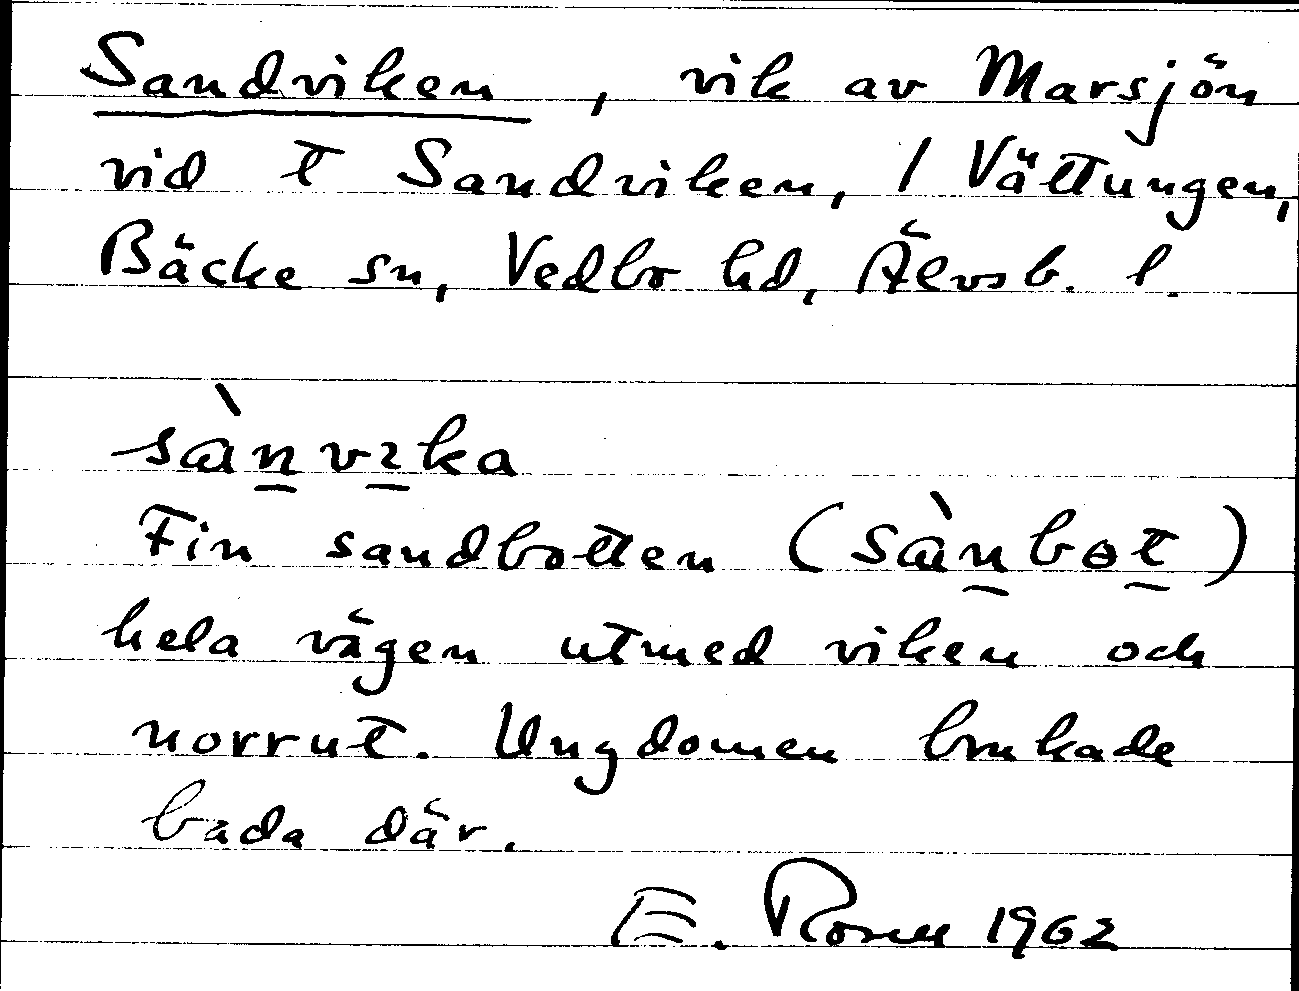 Sandviken, vik av Marsjön
vid t Sandviken, / Vättungen,
Bäcke sn, Vedbo hd, Älvsb. l.
sànvɩka
Fin sandbotten (sànbɵt)
hela vägen utmed viken och
norrut. Ungdomen brukade
bada där.
E. 1962